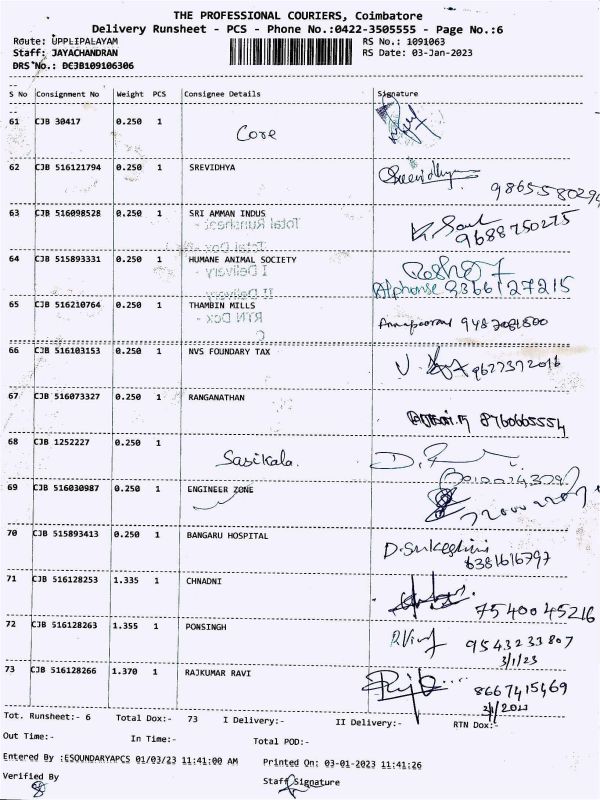 THE PROFESSIONAL COURIERS, Coimbatore
Delivery Runsheet - PCS - Phone No.:0422-3505555 - Page No.:6
Route: UPPLIPALAYAM RS No.: 1091063
Staff: JAYACHANDRAN RS Date: 03-Jan-2023
DRS No.: DCJB109106306
S No Consignment No Weight PCS Consignee Details Signature
61 CJB 30417 0.250 1 Core
62 CJB 516121794 0.250 1 SREVIDHYA Sreevidhya
9865580294
63 CJB 516098528 0.250 1 SRI AMMAN INDUS
9688750275
Total Runsheet -
Total Dox -
64 CJB 515893331 0.250 1 HUMANE ANIMAL SOCIETY
I Delivery -
Alphonse 9366127215
II Delivery
65 CJB 516210764 0.250 1 THAMBIN MILLS
RTN Dox -
66 CJB 516103153 0.250 1 NVS FOUNDARY TAX
9627372016
67 CJB 516073327 0.250 1 RANGANATHAN 8760665554
68 CJB 1252227 0.250 1 Sasikala.
69 CJB 516030987 0.250 1 ENGINEER ZONE
70 CJB 515893413 0.250 1 BANGARU HOSPITAL
6381616797
71 CJB 516128253 1.335 1 CHNADNI
7540045216
72 CJB 516128263 1.355 1 PONSINGH 9543233807
3/1/23
73 CJB 516128266 1.370 1 RAJKUMAR RAVI
8667415469
Tot. Runsheet:- 6 Total Dox:- 73 I Delivery:- II Delivery:- RTN Dox:-
Out Time:- In Time:- Total POD:-
Entered By :ESOUNDARYAPCS 01/03/23 11:41:00 AM Printed On: 03-01-2023 11:41:26
Verified By Staff Signature